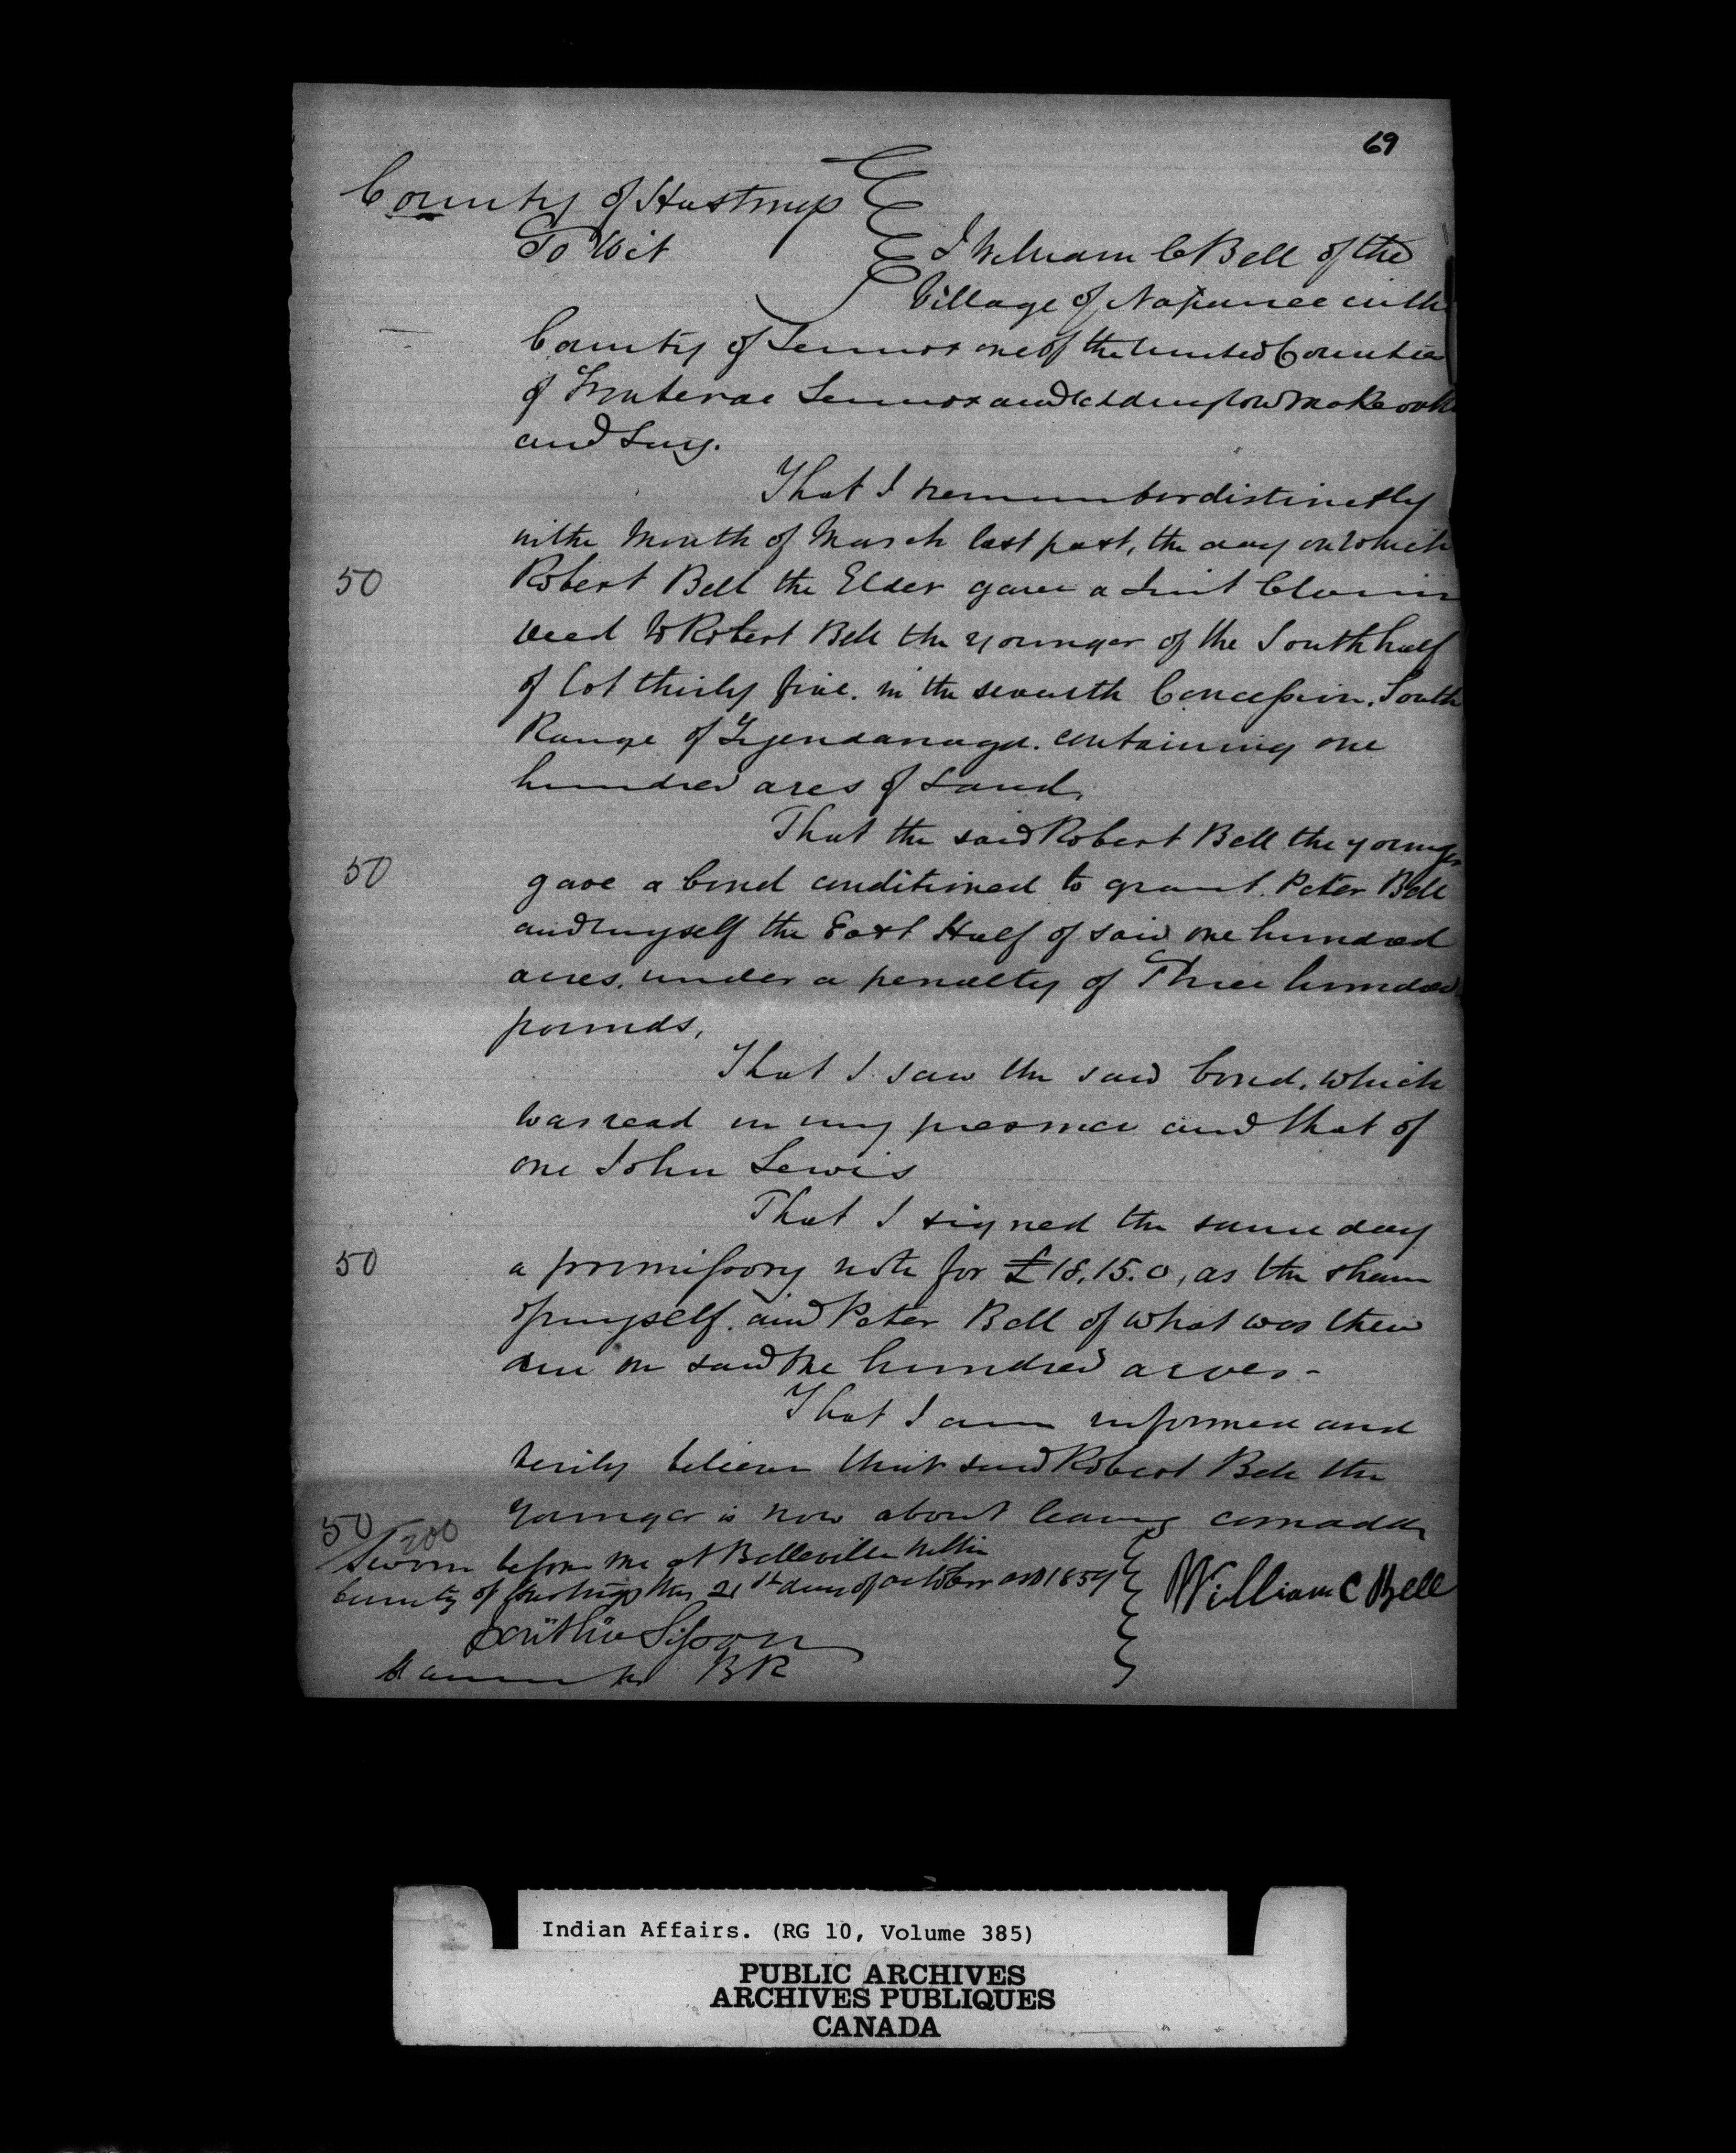 69
County of Hastings
To Wit
I William C Bell of the
Village of Napanee in the
County of Lennox one of the United Counties
of Frontenac Lennox and Addington make oath
and Say.
That I remember distinctly
in the Month of March last past, the day on which
50
Robert Bell the Elder gave a Quit Claim
deed to Robert Bell the younger of the South half
of lot thirty five. in the seventh Concession. South
Range of Tyendanaga. containing one
hundred acres of Land,
That the said Robert Bell the younger
50
gave a bond conditioned to grant Peter Bell
and myself the East Half of said one hundred
acres, under a penalty of Three hundred
pounds,
That I saw the said bond, which
was read in my presence and that of
one John Lewis
That I signed the same day
50
a promissory note for £18.15.0, as the share
of myself and Peter Bell of what was then
due on said one hundred acres -
That I am informed and
verily believe that said Robert Bell the
50
younger is now about leaving Canada
200
Sworn before me at Belleville in the
County of Hastings this 21st day of October AD 1859
William C Bell
BR
Indian Affairs. (RG 10, Volume 385)
PUBLIC ARCHIVES
ARCHIVES PUBLIQUES
CANADA